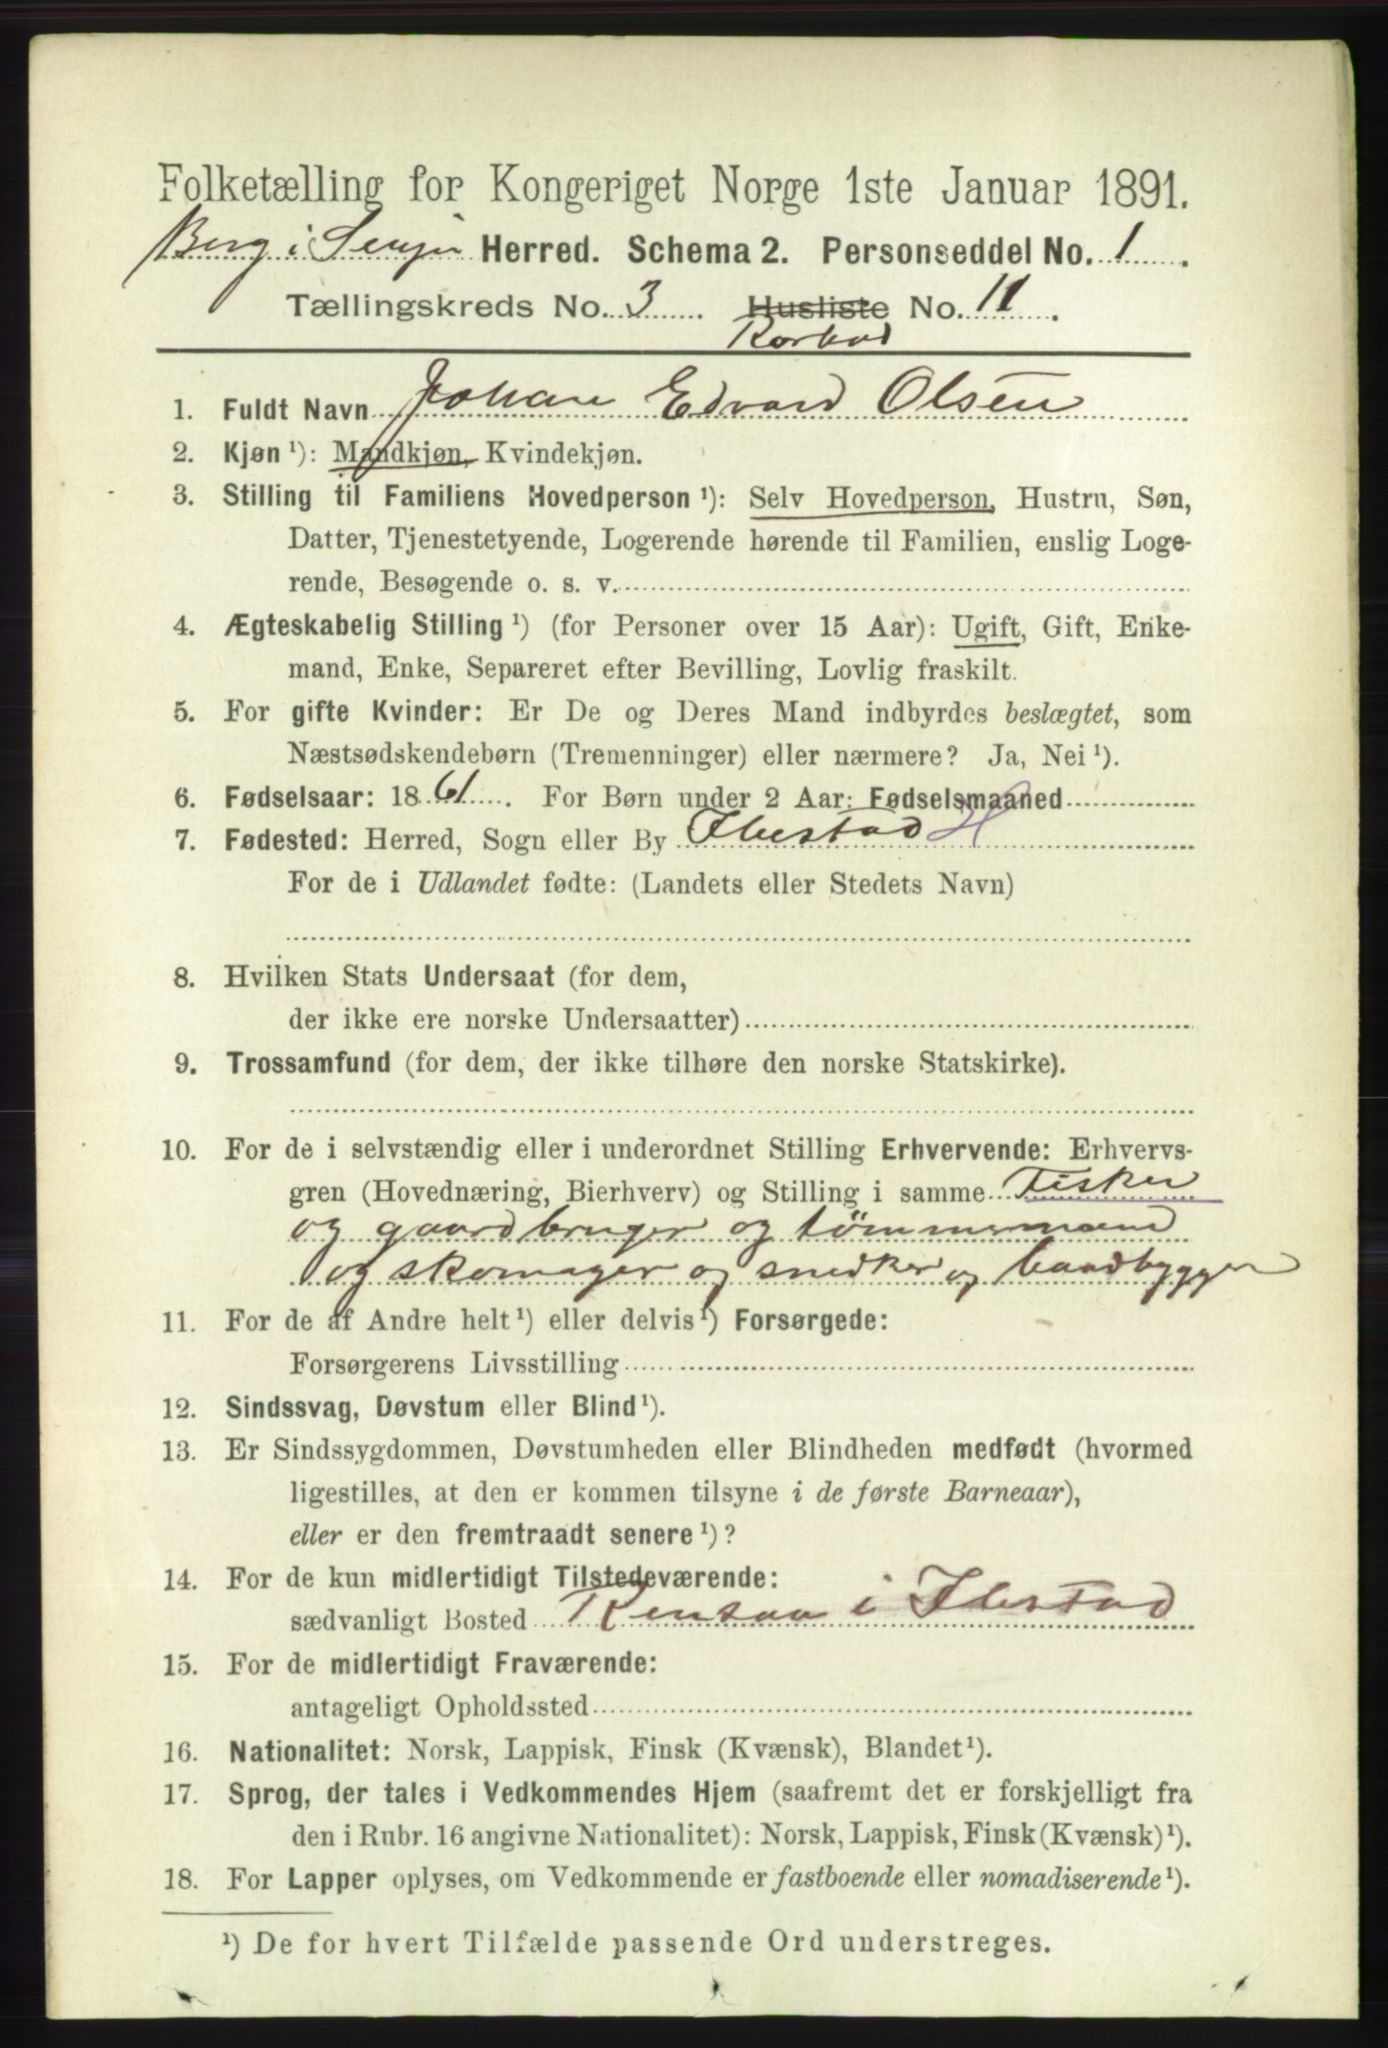 Folketælling for Kongeriget Norge 1ste Januar 1891.
Berg i Senjen Herred. Schema 2. Personseddel No. 1.
Tællingskreds No. 3. Husliste No. 11.
Rorbod
1. Fuldt Navn Johan Edvard Olsen
2. Kjøn ¹): Mandkjøn, Kvindekjøn.
3. Stilling til Familiens Hovedperson ¹): Selv Hovedperson, Hustru, Søn,
Datter, Tjenestetyende, Logerende hørende til Familien, enslig Loge-
rende, Besøgende o. s. v.
4. Ægteskabelig Stilling ¹) (for Personer over 15 Aar): Ugift, Gift, Enke-
mand, Enke, Separeret efter Bevilling, Lovlig fraskilt.
5. For gifte Kvinder: Er De og Deres Mand indbyrdes beslægtet, som
Næstsødskendebørn (Tremenninger) eller nærmere? Ja, Nei ¹).
6. Fødselsaar: 1861. For Børn under 2 Aar: Fødselsmaaned
7. Fødested: Herred, Sogn eller By Ibestad
For de i Udlandet fødte: (Landets eller Stedets Navn)
8. Hvilken Stats Undersaat (for dem,
der ikke ere norske Undersaatter)
9. Trossamfund (for dem, der ikke tilhøre den norske Statskirke).
10. For de i selvstændig eller i underordnet Stilling Erhvervende: Erhvervs-
gren (Hovednæring, Bierhverv) og Stilling i samme Fisker
og gaardbruger og tömmermand
og skomager og snedker og baadbygger
11. For de af Andre helt ¹) eller delvis ¹) Forsørgede:
Forsørgerens Livsstilling
12. Sindssvag, Døvstum eller Blind ¹).
13. Er Sindssygdommen, Døvstumheden eller Blindheden medfødt (hvormed
ligestilles, at den er kommen tilsyne i de første Barneaar),
eller er den fremtraadt senere ¹)?
14. For de kun midlertidigt Tilstedeværende:
sædvanligt Bosted Rensaa i Ibestad
15. For de midlertidigt Fraværende:
antageligt Opholdssted
16. Nationalitet: Norsk, Lappisk, Finsk (Kvænsk), Blandet ¹).
17. Sprog, der tales i Vedkommendes Hjem (saafremt det er forskjelligt fra
den i Rubr. 16 angivne Nationalitet): Norsk, Lappisk, Finsk (Kvænsk) ¹).
18. For Lapper oplyses, om Vedkommende er fastboende eller nomadiserende ¹).
¹) De for hvert Tilfælde passende Ord understreges.